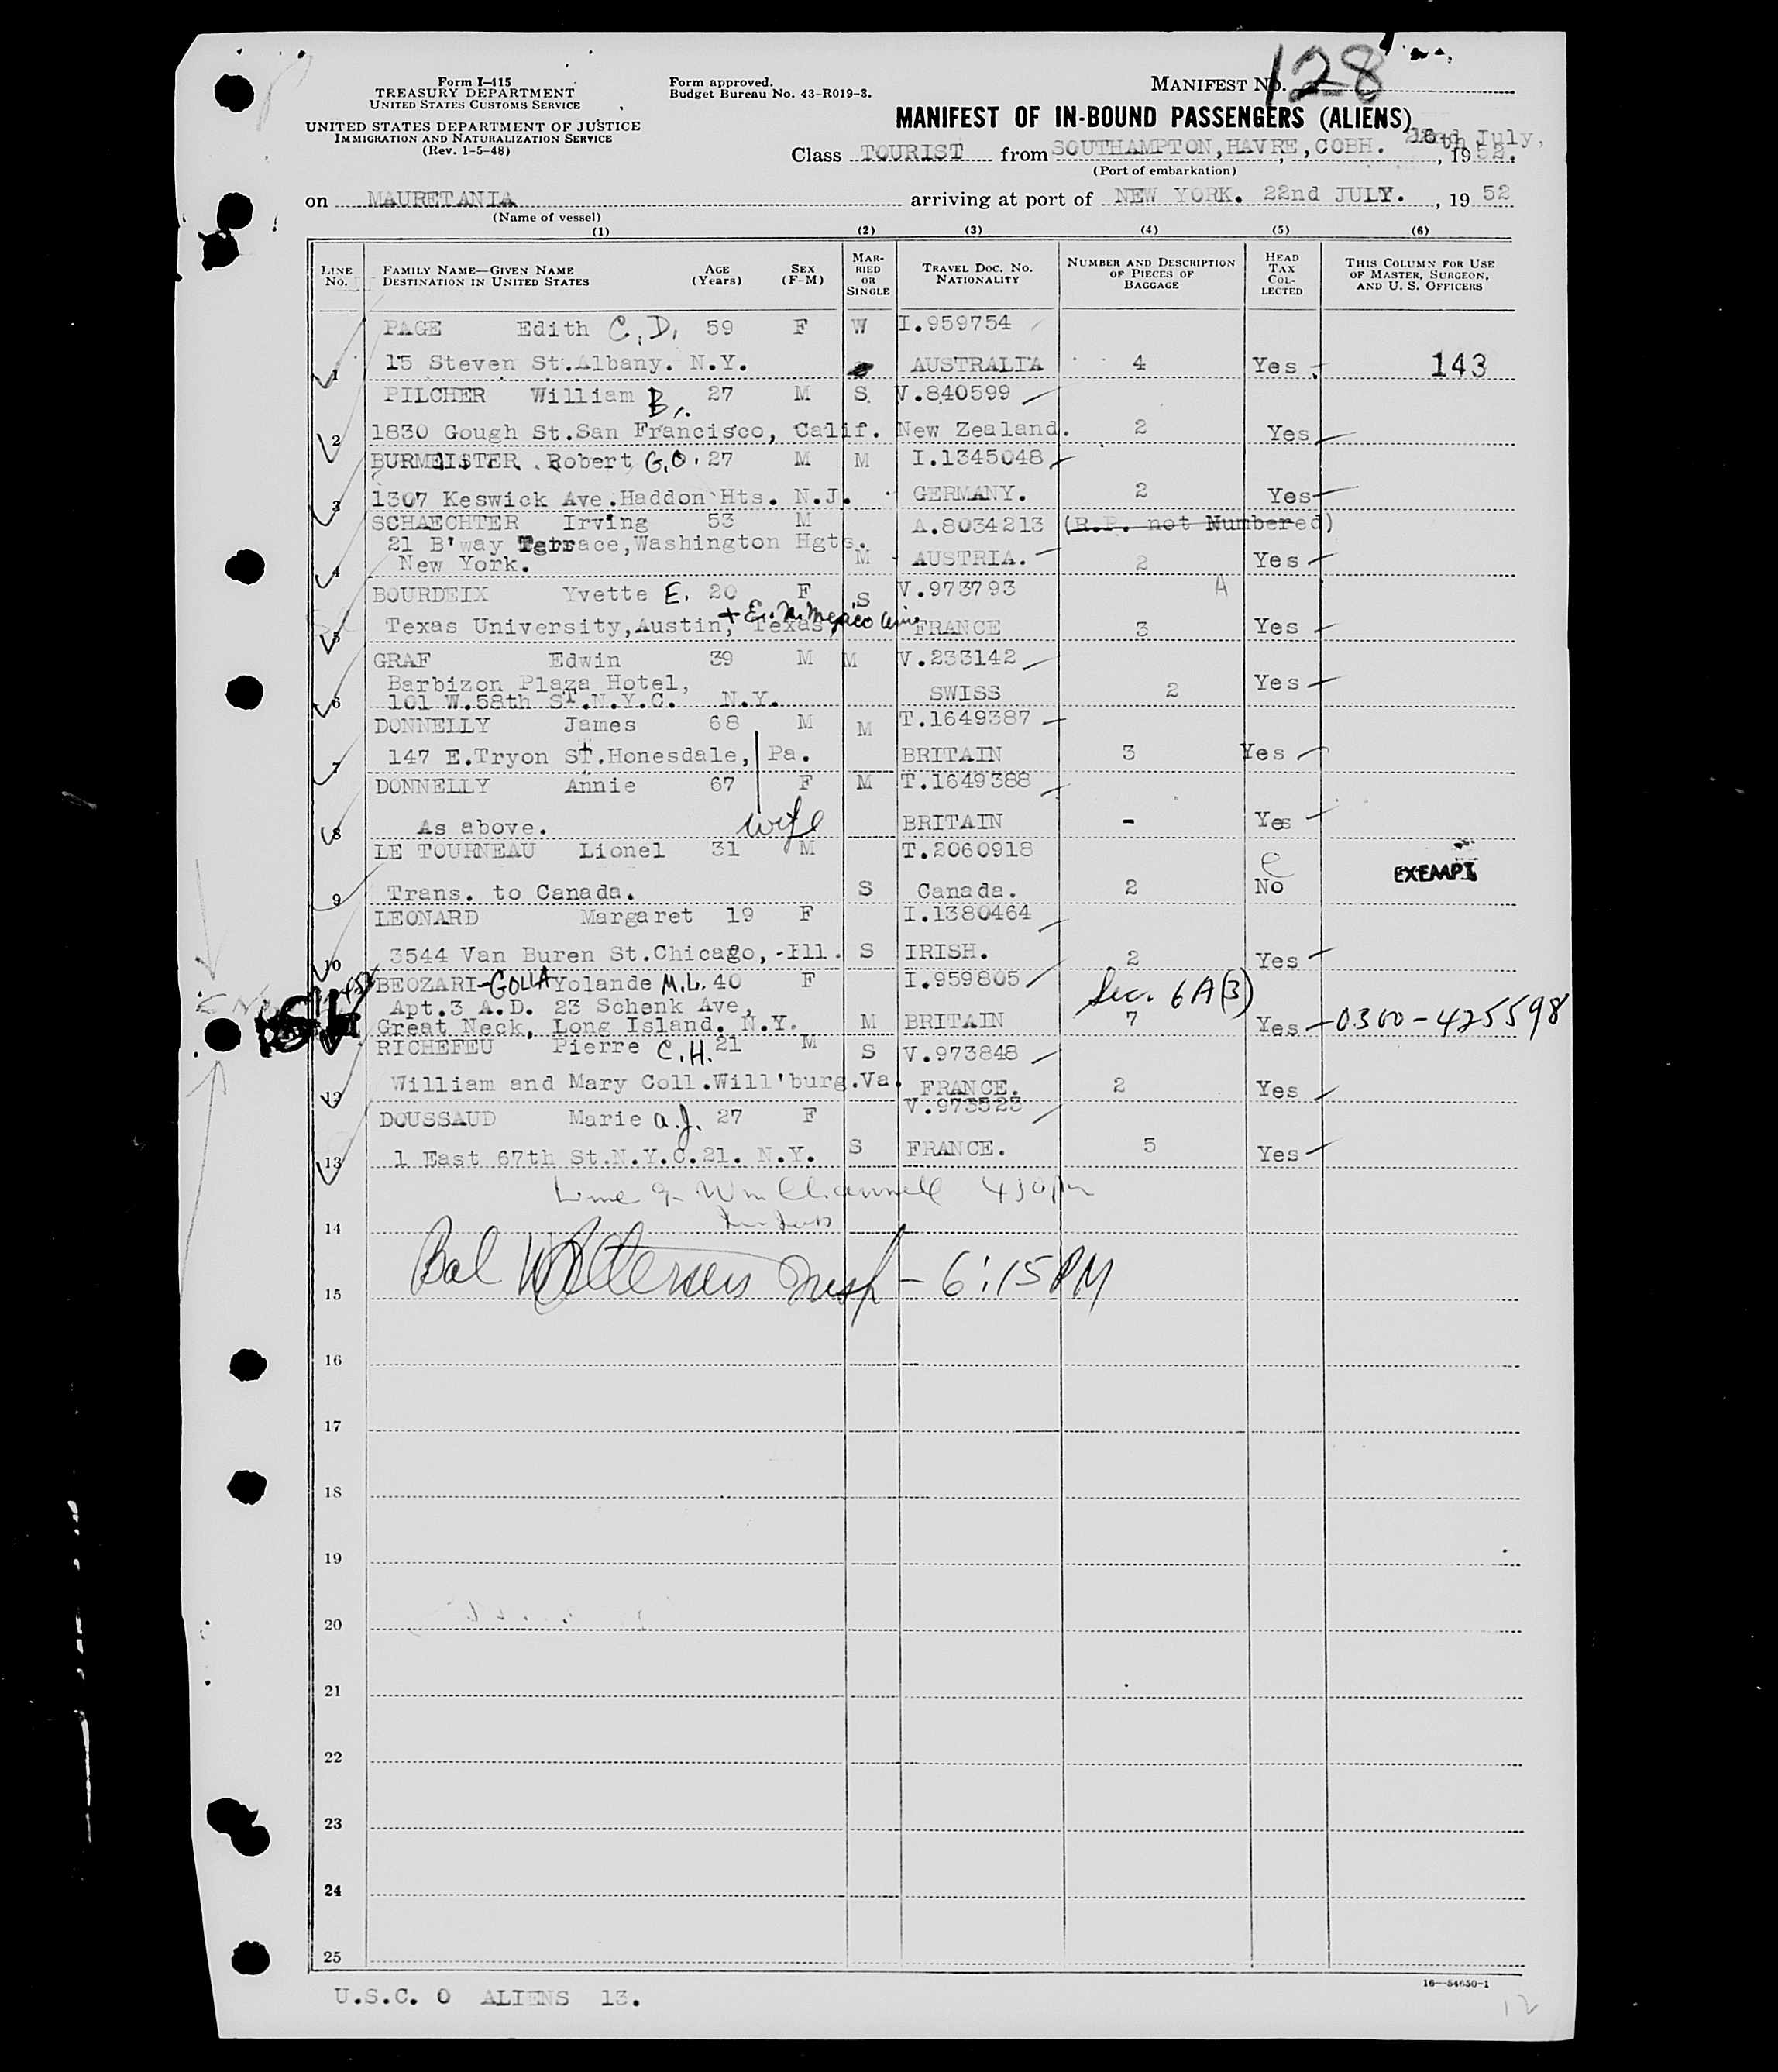 Form I-415
TREASURY DEPARTMENT
UNITED STATES CUSTOMS SERVICE
UNITED STATES DEPARTMENT OF JUSTICE
IMMIGRATION AND NATURALIZATION SERVICE
(Rev. 1-5-48)
Form approved.
Budget Bureau No. 43-R019-3.
MANIFEST NO. 128
MANIFEST OF IN-BOUND PASSENGERS (ALIENS)
Class TOURIST from SOUTHAMPTON, HAVRE, COBH. 16th July, 1952.
(Port of embarkation)
on MAURETANIA arriving at port of NEW YORK. 22nd JULY. , 19 52
(Name of vessel)
(1) (2) (3) (4) (5) (6)
LINE NO. FAMILY NAME—GIVEN NAME DESTINATION IN UNITED STATES AGE (Years) SEX (F-M) MARRIED OR SINGLE TRAVEL DOC. NO. NATIONALITY NUMBER AND DESCRIPTION OF PIECES OF BAGGAGE HEAD TAX COLLECTED THIS COLUMN FOR USE OF MASTER, SURGEON, AND U. S. OFFICERS
PAGE Edith C. D. 59 F W I.959754
1 15 Steven St.Albany. N.Y. AUSTRALIA 4 Yes 143
PILCHER William B. 27 M S V.840599
2 1830 Gough St.San Francisco, Calif. New Zealand. 2 Yes
BURMEISTER Robert G.O. 27 M M I.1345048
3 1307 Keswick Ave.Haddon Hts. N.J. GERMANY. 2 Yes
SCHAECHTER Irving 53 M A.8034213 (R.P. not Numbered)
21 B'way Terrace,Washington Hgts.
4 New York. M AUSTRIA. 2 Yes
BOURDEIX Yvette E. 20 F S V.973793 A
5 Texas University,Austin, Texas, + E. N. Mexico Univ FRANCE 3 Yes
GRAF Edwin 39 M M V.233142
Barbizon Plaza Hotel,
6 101 W.58th ST.N.Y.C. N.Y. SWISS 2 Yes
DONNELLY James 68 M M T.1649387
7 147 E.Tryon St.Honesdale, Pa. BRITAIN 3 Yes
DONNELLY Annie 67 F M T.1649388
8 As above. wife BRITAIN - Yes
LE TOURNEAU Lionel 31 M T.2060918 e
9 Trans. to Canada. S Canada. 2 No EXEMPT
LEONARD Margaret 19 F I.1380464
10 3544 Van Buren St.Chicago, -Ill. S IRISH. 2 Yes
BEOZARI-GOLLA Yolande M.L. 40 F I.959805 Sec. 6A(3)
Apt.3 A.D. 23 Schenk Ave,
Great Neck, Long Island. N.Y. M BRITAIN 7 Yes 0300-425598
RICHEFEU Pierre C.H. 21 M S V.973848
12 William and Mary Coll.Will'burg.Va. FRANCE. 2 Yes
DOUSSAUD Marie A.J. 27 F V.973523
13 1 East 67th St.N.Y.C.21. N.Y. S FRANCE. 5 Yes
Line 9 Wm Channell 430pm
14
15 Bal Insp - 6:15 PM
16
17
18
19
20
21
22
23
24
25
16—54650-1
U.S.C. 0 ALIENS 13.
12